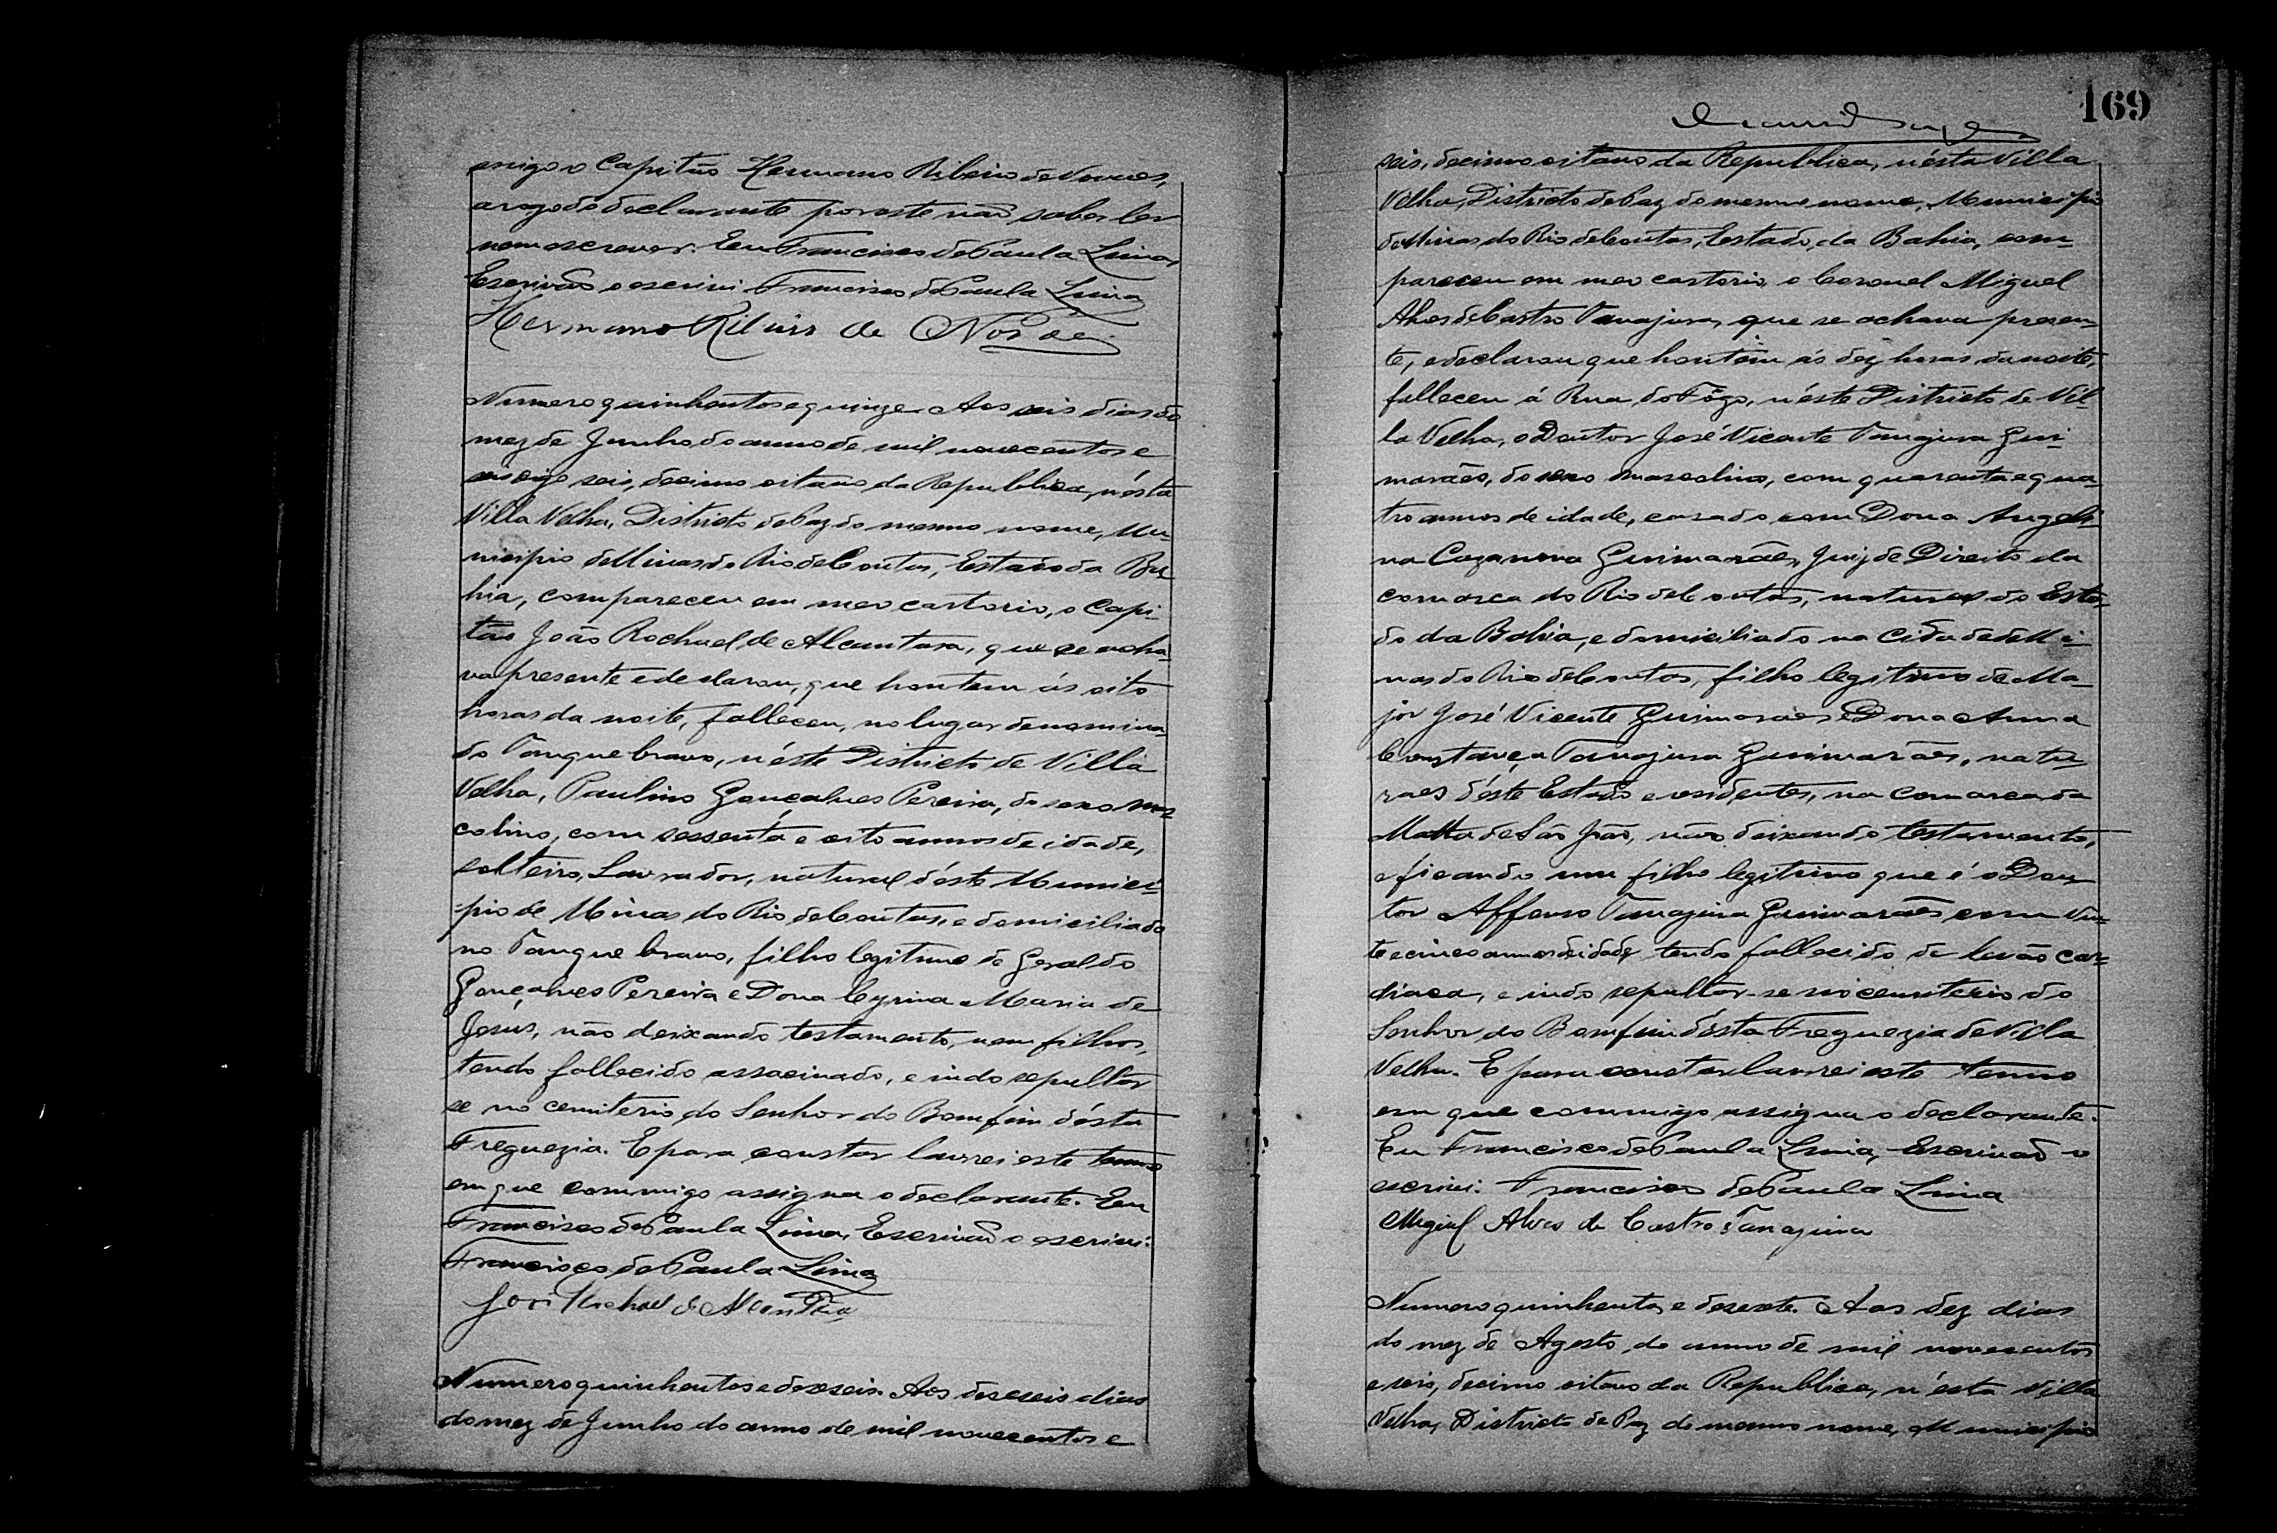 migo o Capitão Hermano Ribeiro de Novaes,
a rogo do declarante por este não saber ler
nem escrever. Eu Francisco de Paula Lima,
Escrivão o escrivi. Francisco de Paula Lima
Hermano Ribeiro de Novaes
Numero quinhentos e quinze. Aos seis dias do
mez de Junho do anno de mil novecentos e
seis, decimo oitavo da Republica, n'ésta
Villa Velha, Districto de Paz do mesmo nome, Mu
nicipio de Minas do Rio de Contas, Estado da Ba
hia, compareceu em meo cartorio, o Capi-
tão João Rachael de Alcantara, que se acha-
va presente e declarou, que hontem ás oito
horas da noite, falleceu, no lugar denomina-
do Tanque bravo, n'éste Districto de Villa
Velha, Paulino Gonçalves Pereira, do sexo mas-
colino, com sessenta e oito annos de idade,
solteiro, Lavrador, natural d'éste Munici-
pio de Minas do Rio de Contas, e domiciliado
no Tanque bravo, filho legitimo de Geraldo
Gonçalves Pereira e Dona Cyrina Maria de
Jesus, não deixando testamento, nem filhos,
tendo fallecido assacinado, e indo sepultar
se no cemiterio do Senhor do Bomfim d'ésta
Freguezia. E para constar lavrei este termo
em que commigo assigna o declarante. Eu
Francisco de Paula Lima, Escrivão o escrivi.
Francisco de Paula Lima
João Rachael de Alcantara
Numero quinhentos e deseseis. Aos deseseis dias
do mez de Junho do anno de mil novecentos e
169
seis, decimo oitavo da Republica, n'ésta Villa
Velha, Districto de Paz do mesmo nome, Municipio
de Minas do Rio de Contas, Estado da Bahia, com-
pareceu em meo cartorio o Coronel Miguel
Alves de Castro Tanajura, que se achava presen-
te, e declarou que hontem ás dez horas da noite,
falleceu á Rua do Fôgo, n'éste Districto de Vil-
la Velha, o Doutor José Vicente Tanajura Gui-
marães, do sexo masculino, com quarenta e qua-
tro annos de idade, casado com Dona Angeli-
na Cazanova Guimarães, Juiz de Direito da
comarca do Rio de Contas, natural do Esta-
do da Bahia, e domiciliado na Cidade de Mi-
nas do Rio de Contas, filho legitimo de Ma-
jor José Vicente Guimarães e Dona Anna
Constança Tanajura Guimarães, natu-
raes d'éste Estado e residentes, na comarca da
Matta de São João, não deixando testamento,
e ficando um filho legitimo que é o Dou-
tor Affonso Tanajura Guimarães com vin-
te e cinco annos de idade, tendo fallecido de lesão car-
diaca, e indo sepultar-se no cemiterio do
Senhor do Bomfim d'ésta Freguezia de Villa
Velha. E para constar lavrei este termo
em que commigo assigna o declarante.
Eu Francisco de Paula Lima, Escrivão o
escrivi. Francisco de Paula Lima
Miguel Alves de Castro Tanajura
Numero quinhentos e desesete. Aos dez dias
do mez de Agosto do anno de mil novecentos
e seis, decimo oitavo da Republica, n'ésta Villa
Velha, Districto de Paz do mesmo nome, Municipio